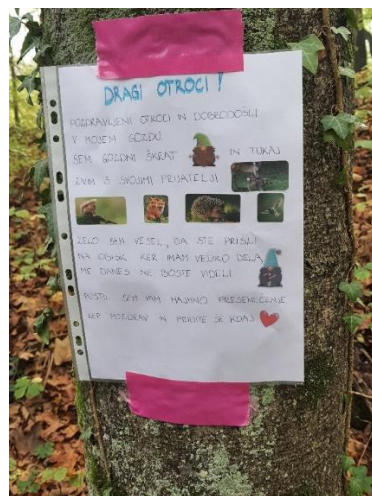 DRAGI OTROCI!
POZDRAVLJENI OTROCI IN DOBRODOŠLI
V MOJEM GOZDU.
SEM GOZDNI ŠKRAT IN TUKAJ
ŽIVIM S SVOJIMI PRIJATELJI
ZELO SEM VESEL, DA STE PRIŠLI
NA OBISK. KER IMAM VELIKO DELA,
ME DANES NE BOSTE VIDELI.
SEM VAM MAJHNO PRESENEČENJE
LEP POZDRAV IN PRIDITE ŠE KDAJ